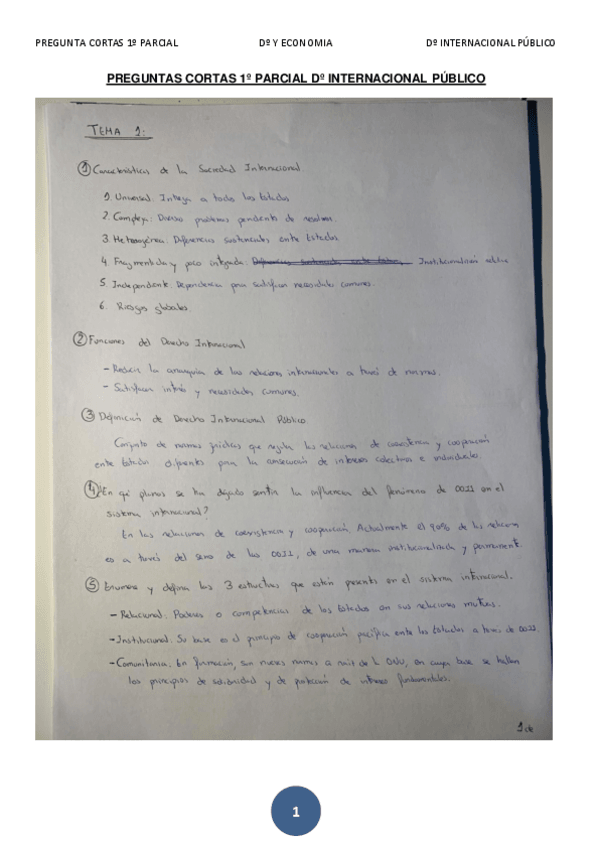 PREGUNTA CORTAS 1º PARCIAL Dº Y ECONOMIA Dº INTERNACIONAL PÚBLICO
PREGUNTAS CORTAS 1º PARCIAL Dº INTERNACIONAL PÚBLICO
TEMA 1:
① Características de la Sociedad Internacional
1. Universal: Integra a todos los Estados
2. Compleja: Diversos problemas pendientes de resolver.
3. Heterogénea: Diferencias sustanciales entre Estados
4. Fragmentada y poco integrada: Institucionalización relativa
5. Independiente: Dependencia para satisfacer necesidades comunes.
6. Riesgos globales.
② Funciones del Derecho Internacional
- Reducir la anarquía de las relaciones internacionales a través de normas.
- Satisfacer interés y necesidades comunes.
③ Definición de Derecho Internacional Público.
Conjunto de normas jurídicas que regulan las relaciones de coexistencia y cooperación
entre Estados diferentes para la consecución de intereses colectivos e individuales.
④ ¿En qué planos se ha dejado sentir la influencia del fenómeno de OOII en el
sistema internacional?
En las relaciones de coexistencia y cooperación. Actualmente el 90% de las relaciones
es a través del seno de las OOII, de una manera institucionalizada y permanente.
⑤ Enumera y defina las 3 estructuras que están presentes en el sistema internacional.
- Relacional: Poderes o competencias de los Estados en sus relaciones mutuas.
- Institucional: Su base es el principio de cooperación pacífica entre los Estados a través de OOII.
- Comunitaria: En formación, son nuevas normas a raíz de la ONU, en cuya base se hallan
los principios de solidaridad y de protección de intereses fundamentales.
1